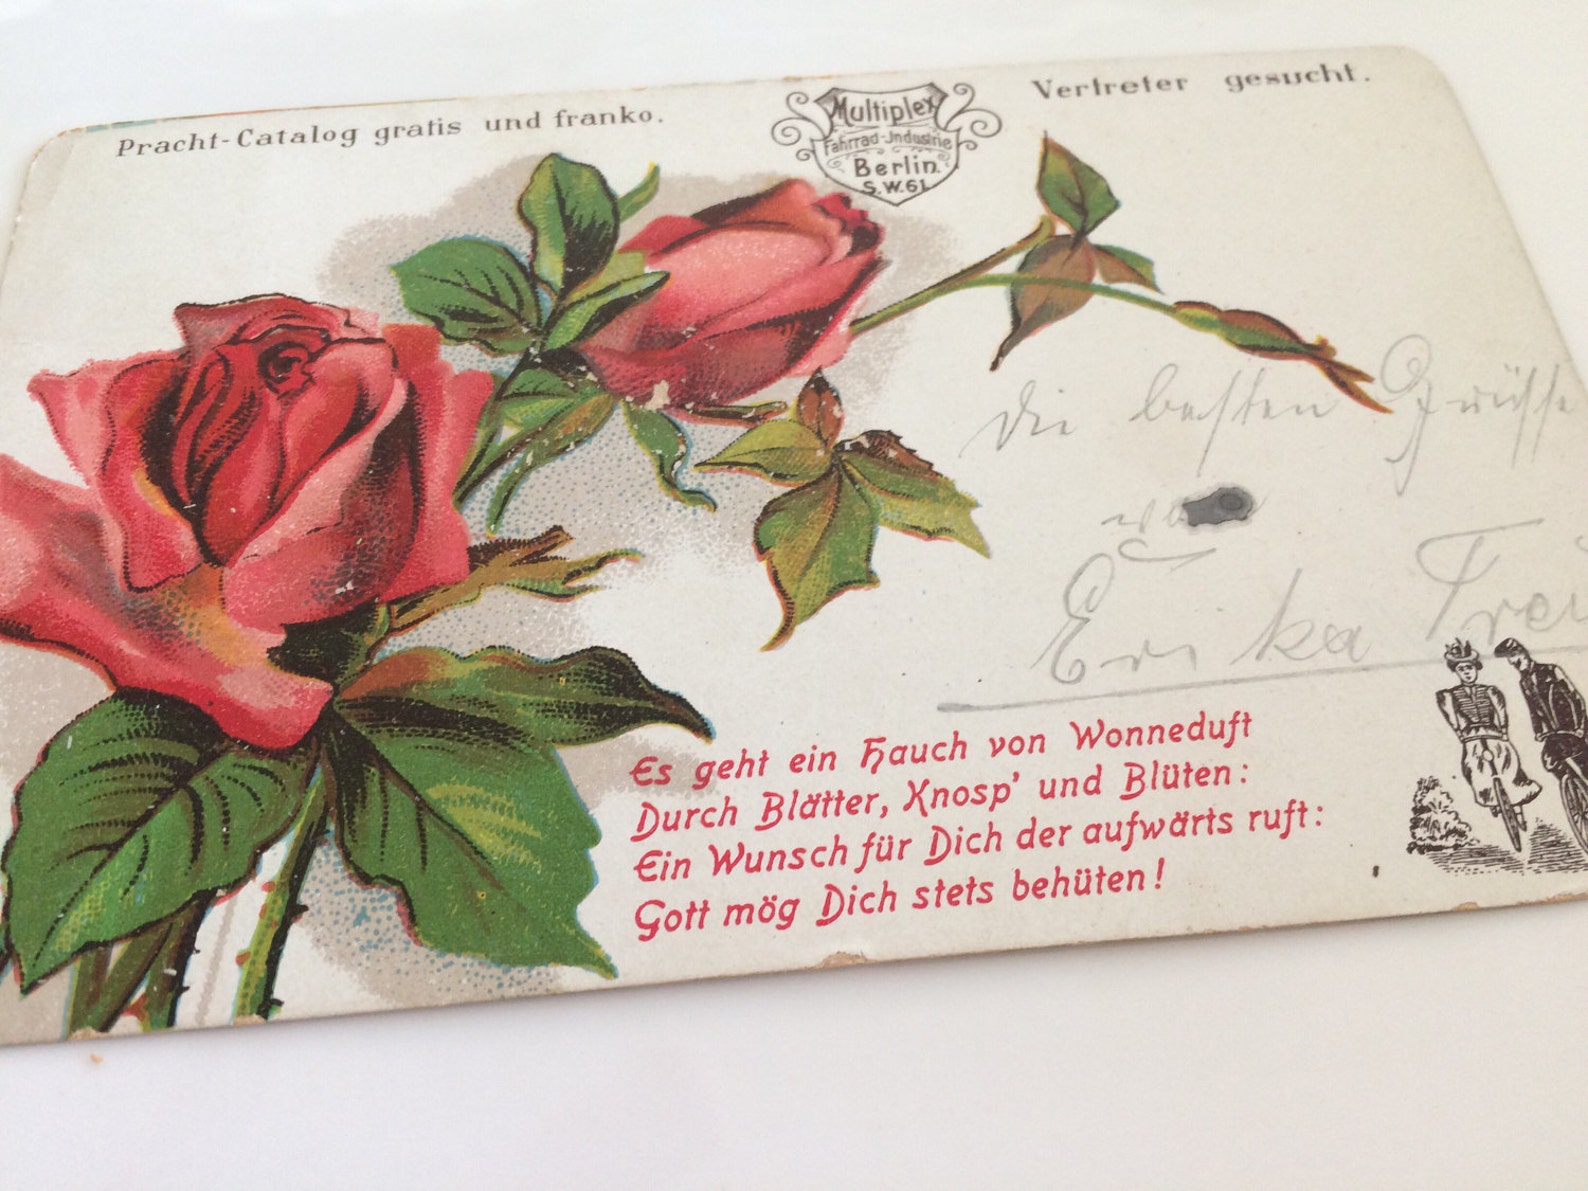 Pracht-Catalog gratis und franko.
Multiplex
Fahrrad-Industrie
Berlin.
S.W.61.
Vertreter gesucht.
Die besten Grüsse
Erika
Es geht ein Hauch von Wonneduft
Durch Blätter, Knosp' und Blüten:
Ein Wunsch für Dich der aufwärts ruft:
Gott mög Dich stets behüten!